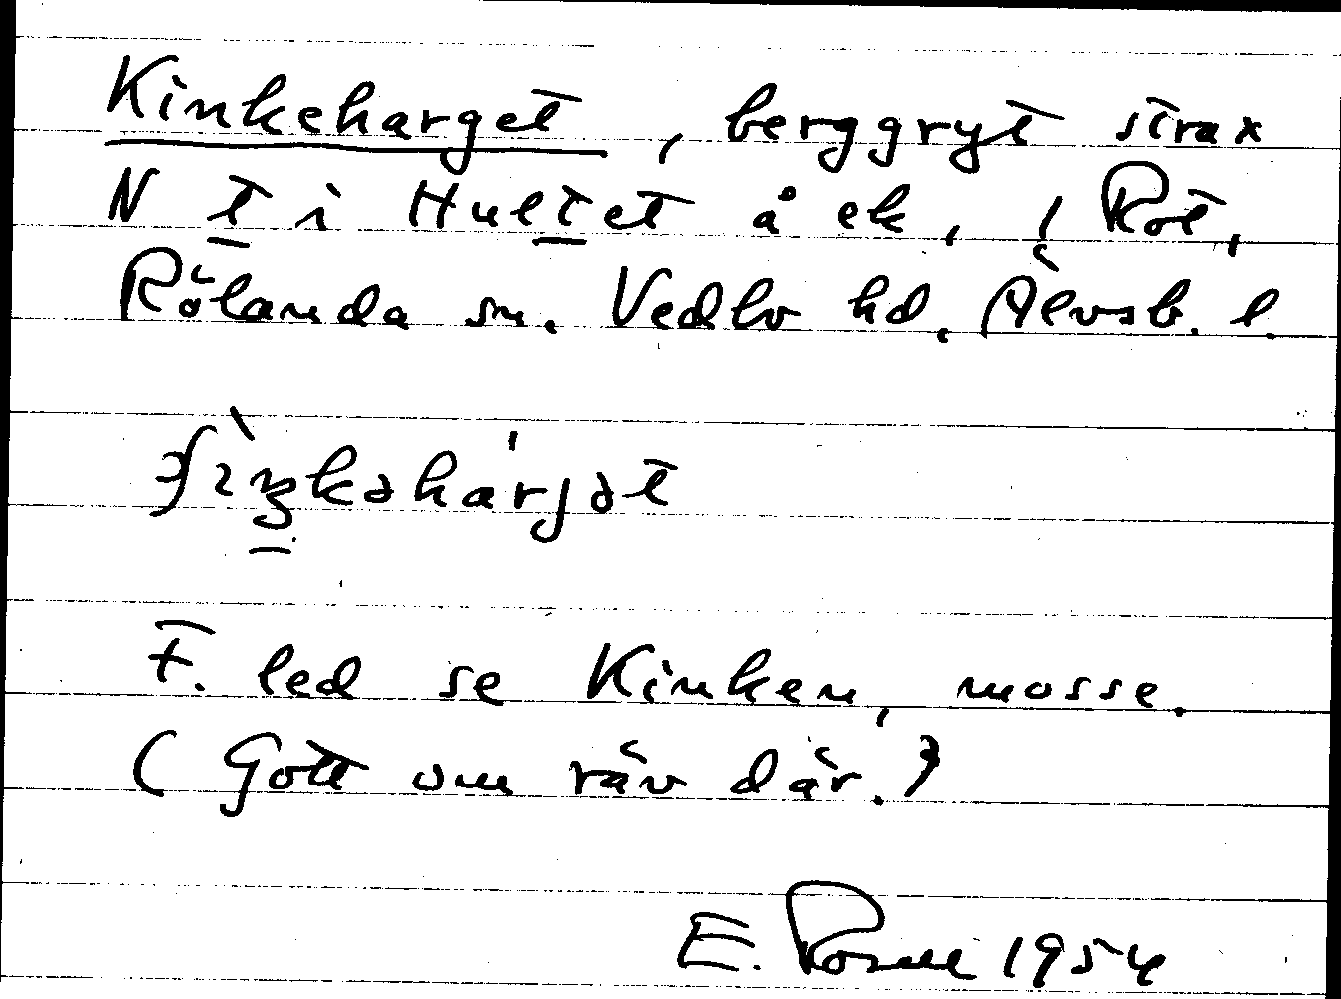 Kinkeharget, berggryt strax
N t i Hultet å ek, i Röt,
Rölanda sn. Vedbo hd. Älvsb. l.
F. led se Kinken, mosse.
(Gott om räv där.)
E. 1954